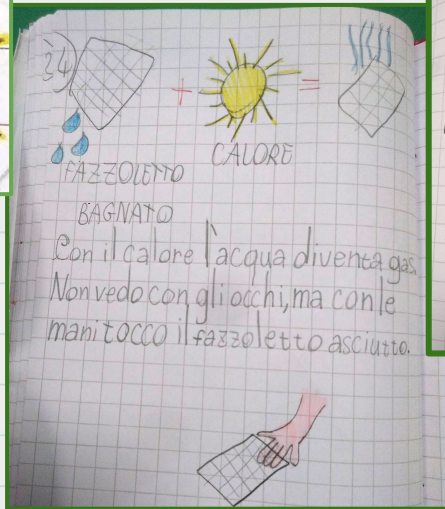 34)
+ =
CALORE
FAZZOLETTO
BAGNATO
Con il calore l'acqua diventa gas.
Non vedo con gli occhi, ma con le
mani tocco il fazzoletto asciutto.